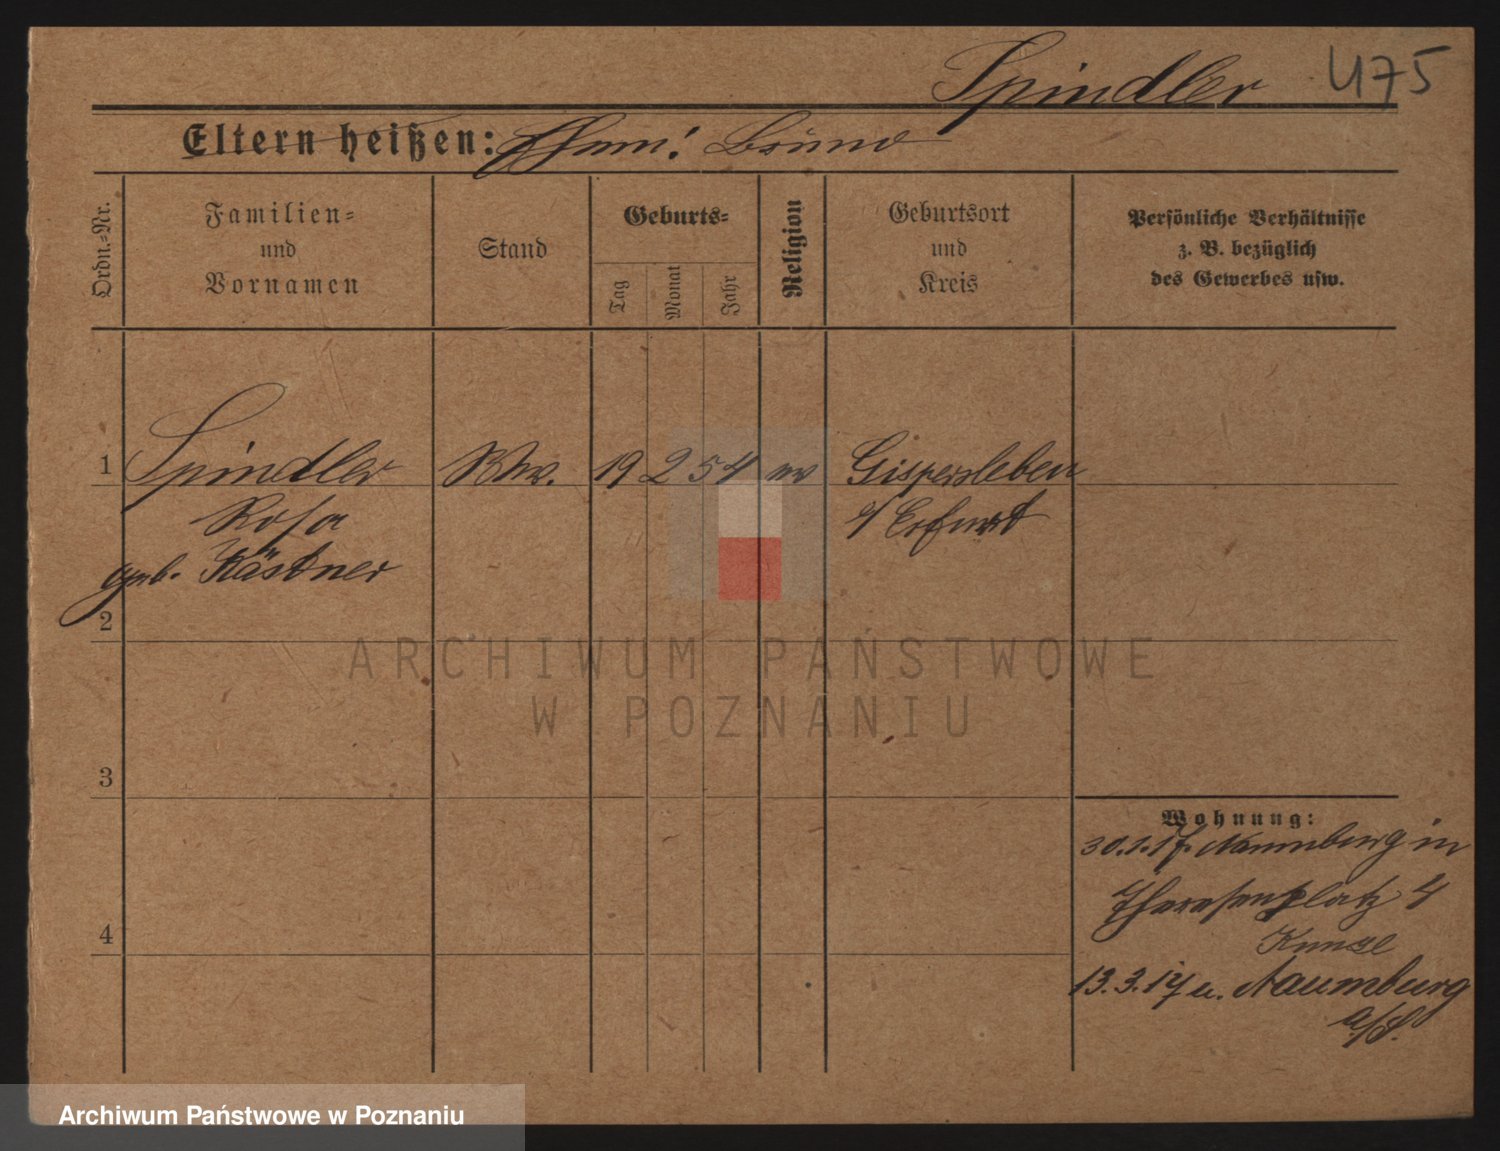 Spindler 475
Eltern heißen: Ehem: Bruno
Ordn.-Nr.
Familien-
und
Vornamen
Stand
Geburts-
Tag
Monat
Jahr
Religion
Geburtsort
und
Kreis
Persönliche Verhältnisse
z. B. bezüglich
des Gewerbes usw.
1 Spindler Ww. 19 2 54 ev Gispersleben
Rosa
a/ Erfurt
geb. Kästner
2
ARCHIWUM PAŃSTWOWE
W POZNANIU
3
Wohnung:
30.1.17. Naumburg in
Theresenplatz 4
4
Kunze
13.3.17 n. Naumburg
a/S.
Archiwum Państwowe w Poznaniu